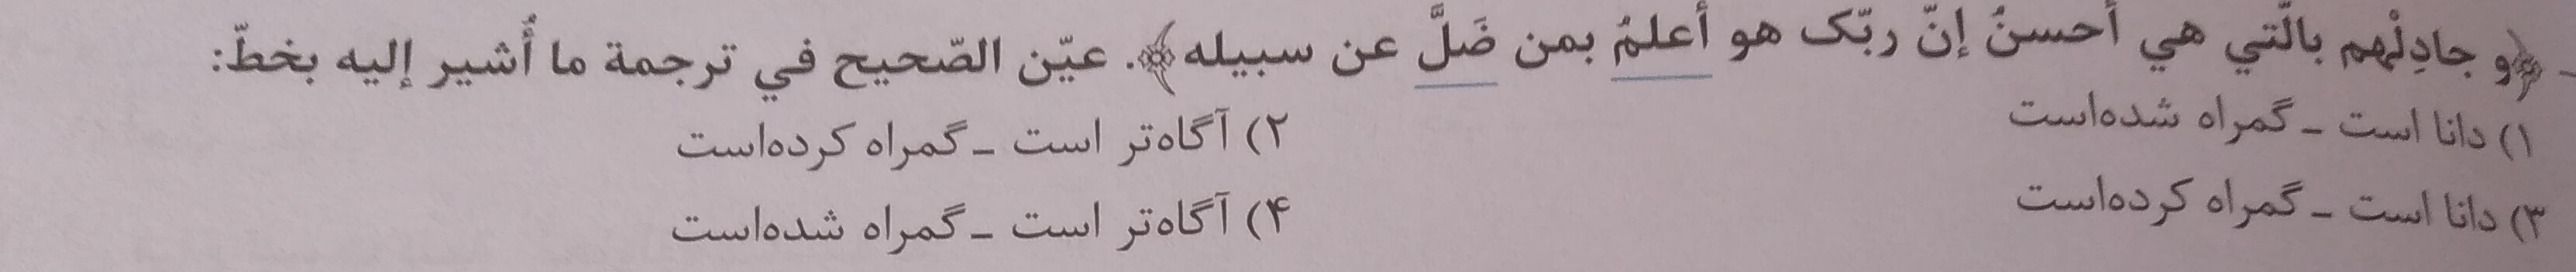 ـ ﴿و جادِلْهم بالّتي هي أحسنُ إنّ ربّک هو أعلمُ بمن ضَلَّ عن سبيله﴾. عيّن الصّحيح في ترجمة ما أُشير إليه بخطّ:
۱) دانا است ـ گمراه شده‌است
۲) آگاه‌تر است ـ گمراه کرده‌است
۳) دانا است ـ گمراه کرده‌است
۴) آگاه‌تر است ـ گمراه شده‌است